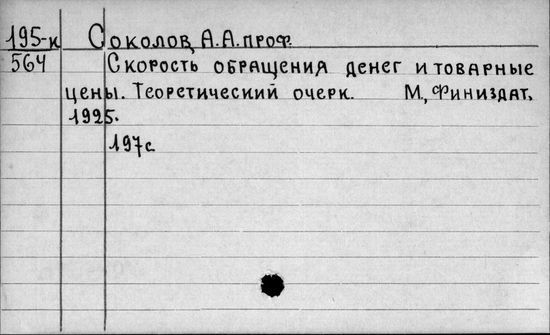 195-к Соколов, А.А. проф.
564 Скорость обращения денег и товарные
цены. Теоретический очерк. М, Финиздат,
1925.
197с